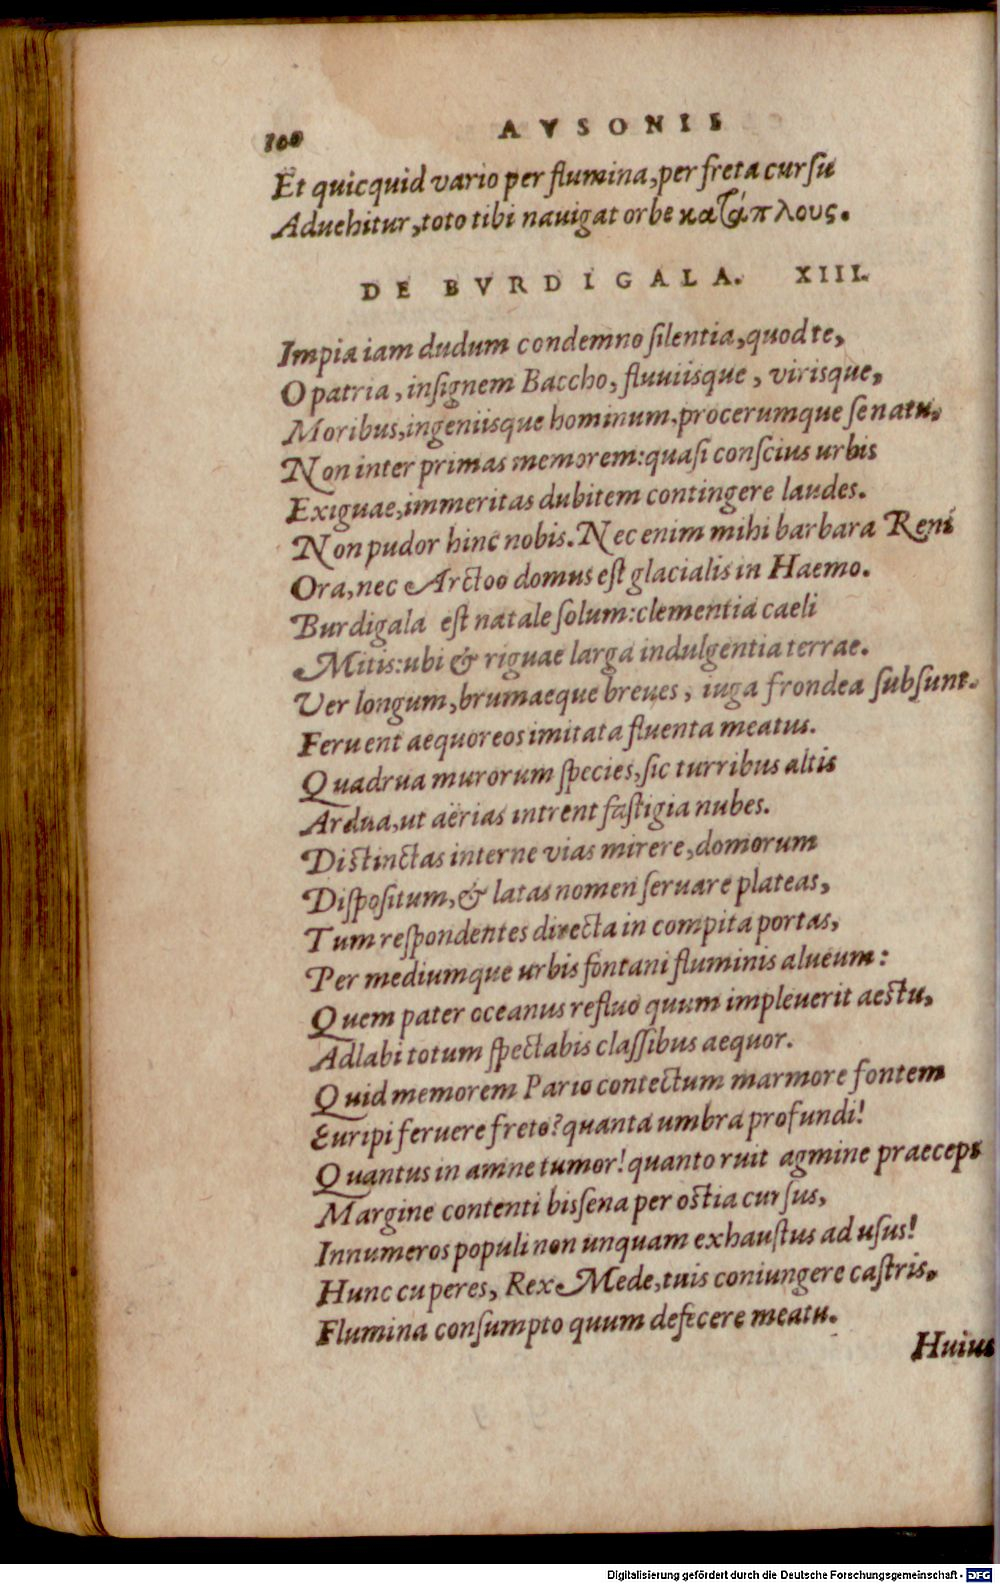 100 AVSONII
Et quicquid vario per flumina, per freta cursu
Aduehitur, toto tibi nauigat orbe κατάπλους.
DE BVRDIGALA. XIII.
Impia iam dudum condemno silentia, quod te,
O patria, insignem Baccho, fluuiisque, virisque,
Moribus, ingeniisque hominum, procerumque senatu,
Non inter primas memorem: quasi conscius urbis
Exiguae, immeritas dubitem contingere laudes.
Non pudor hinc nobis. Nec enim mihi barbara Reni
Ora, nec Arctoo domus est glacialis in Haemo.
Burdigala est natale solum: clementia caeli
Mitis: ubi & riguae larga indulgentia terrae.
Ver longum, brumaeque breues, iuga frondea subsunt.
Feruent aequoreos imitata fluenta meatus.
Quadrua murorum species, sic turribus altis
Ardua, ut aërias intrent fastigia nubes.
Distinctas interne vias mirere, domorum
Dispositum, & latas nomen seruare plateas,
Tum respondentes directa in compita portas,
Per mediumque urbis fontani fluminis alueum:
Quem pater oceanus refluo quum impleuerit aestu,
Adlabi totum spectabis classibus aequor.
Quid memorem Pario contectum marmore fontem
Euripi feruere freto? quanta umbra profundi!
Quantus in amne tumor! quanto ruit agmine praeceps
Margine contenti bissena per ostia cursus,
Innumeros populi non unquam exhaustus ad usus!
Hunc cuperes, Rex Mede, tuis coniungere castris.
Flumina consumpto quum defecere meatu.
Huius
Digitalisierung gefördert durch die Deutsche Forschungsgemeinschaft - DFG